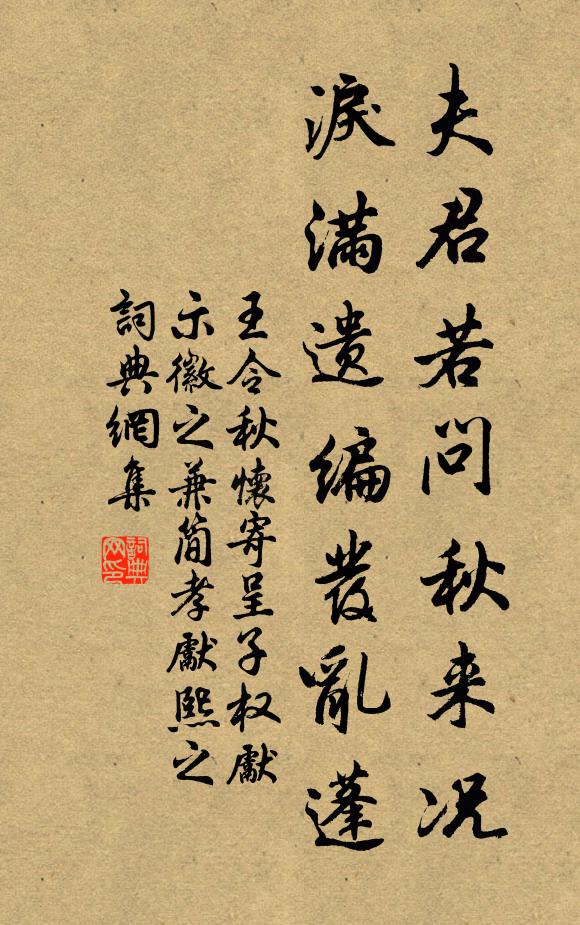 夫君若问秋来况
淚滿遗编發亂蓬
王令秋懷寄呈子权獻
示徽之兼简孝獻熙之
詞典網集
詞典网印